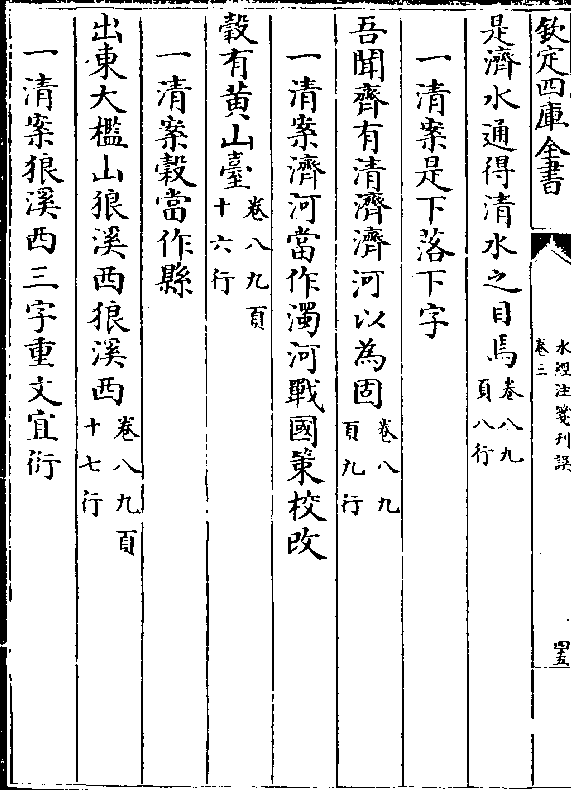 欽定四庫全書
水經注箋刊誤
卷三
四五
是濟水通得清水之目焉卷八九頁八行
一清案是下落下字
吾聞齊有清濟濟河以為固卷八九頁九行
一清案濟河當作濁河戰國策校改
穀有黄山臺卷八九頁十六行
一清案穀當作縣
出東大檻山狼溪西狼溪西卷八九頁十七行
一清案狼溪西三字重文宜衍